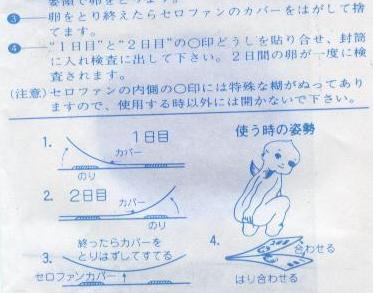 ③ 卵をとり終えたらセロファンのカバーをはがして捨
てます。
④ "1日目"と"2日目"の〇印どうしを貼り合せ、封筒
に入れ検査に出して下さい。2日間の卵が一度に検
査されます。
(注意)セロファンの内側の〇印には特殊な糊がぬってあり
ますので、使用する時以外には開かないで下さい。
1. 1日目
カバー
のり
2. 2日目
カバー
のり
3. 終ったらカバーを
とりはずしてすてる
セロファンカバー
使う時の姿勢
4. 合わせる
はり合わせる